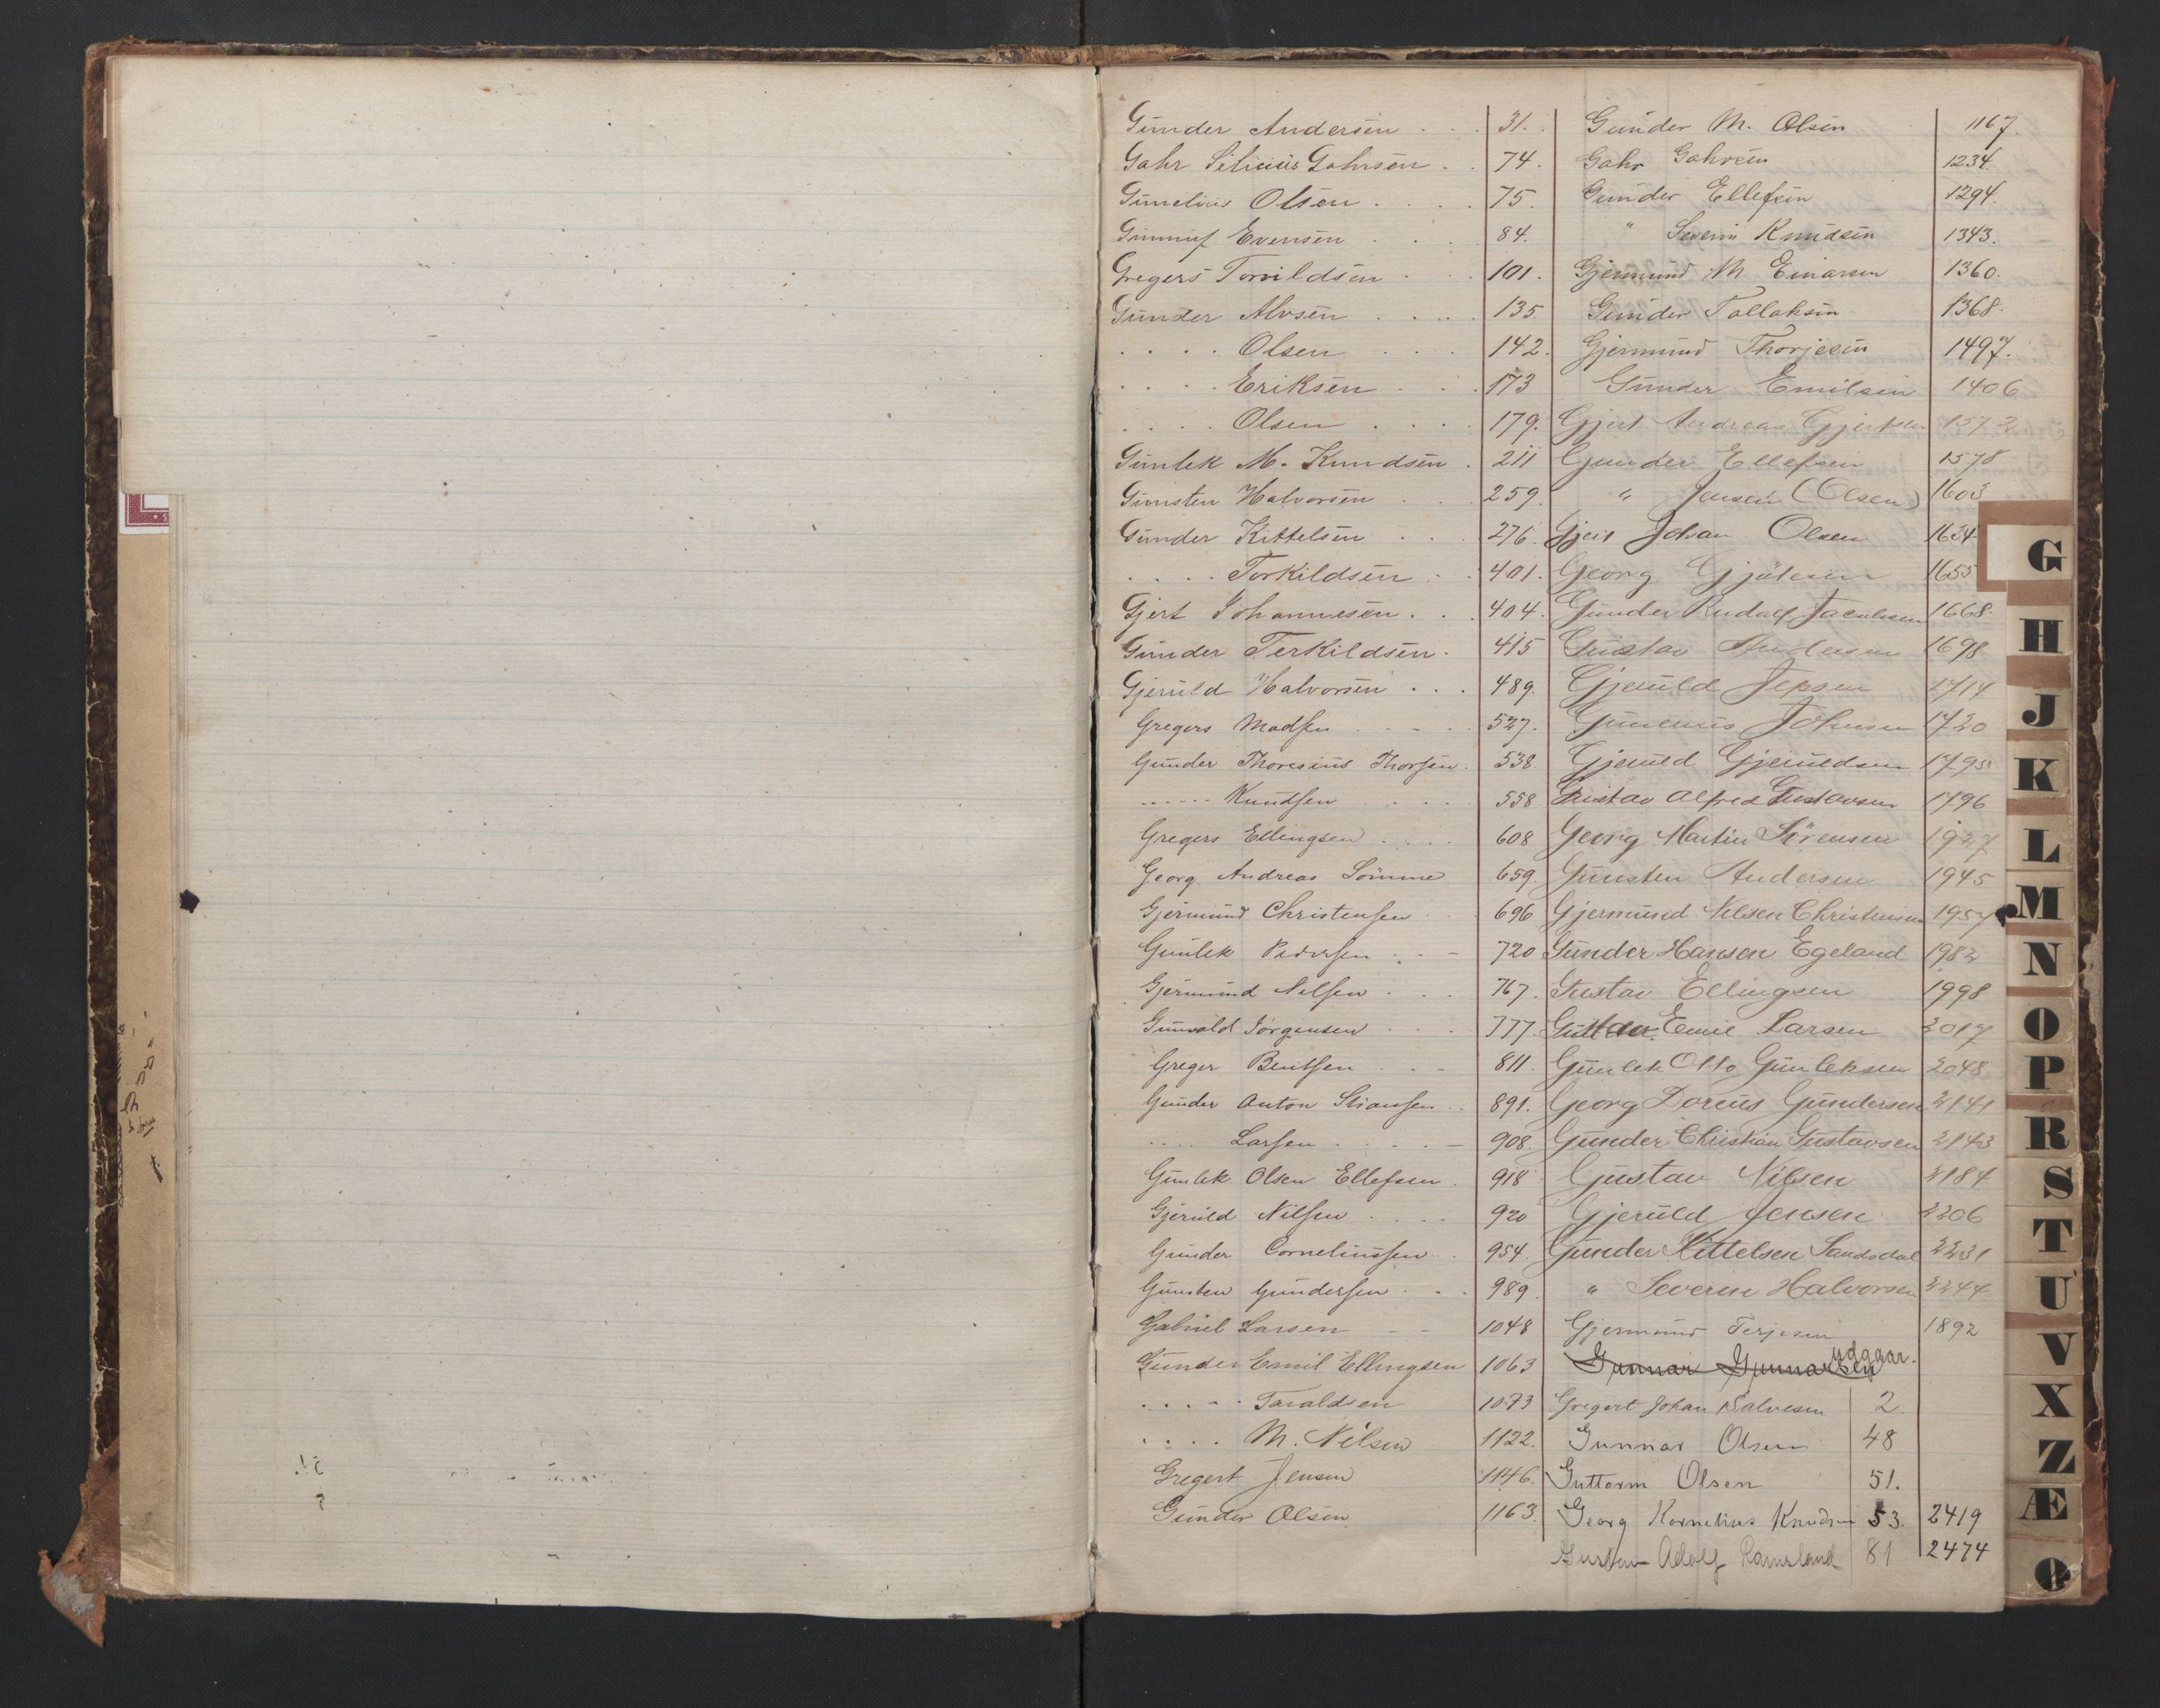 Gunder Andersen . . . 31.
Gahr Silicius Gahrsen . . 74.
Gunelius Olsen . . . . 75.
Gunnuf Evensen . . . 84.
Gregers Torvildsen . . . 101.
Gunder Alvsen . . . . 135.
. . . . Olsen . . . 142.
. . . . Eriksen . . . 173
. . . . Olsen . . . . 179.
Gunlek M. Knudsen . 211
Gunsten Halvorsen . . . 259.
Gunder Kittelsen . . . 276.
. . . . Torkildsen . . 401.
Gjert Johannesen . . . 404.
Gunder Terkildsen . 415
Gjeruld Halvorsen . . . 489.
Gregers Madsen . . . . 527.
Gunder Thoresius Thorsen . 538.
...... Knudsen . . . 558
Gregers Ellingsen . . . . 608
Georg Andreas Sømme 659.
Gjermund Christensen . . 696
Gunlek Pedersen . . - 720
Gjermund Nilsen . . . 767.
Gunvald Jørgensen . . . 777.
Greger Bentsen . . - 811.
Gunder Anton Stiansen . . 891.
.... Larsen . . . . - 908.
Gunlek Olsen Ellefsen . 918
Gjeruld Nilsen . . . . 920
Gunder Corneliussen . . 954.
Gunsten Gundersen . . . 989.
Gabriel Larsen - - 1048
Gunder Emil Ellingsen 1063
. . . - - Taraldsen 1073
. . . . M. Nilsen 1122.
Gregert Jensen 1146.
Gunder Olsen 1163.
Gunder M. Olsen 1167.
Gahr Gahrsen 1234.
Gunder Ellefsen 1294.
" Severin Knudsen 1343.
Gjermund M Einarsen 1360.
Gunder Tallaksen 1368.
Gjermund Thorjesen 1497.
Gunder Emilsen 1406
Gjert Andreas Gjertsen 1572
Gunder Ellefsen 1578
" Jensen (Olsen) 1603
Gjert Johan Olsen 1634
Georg 1655
Gunder Rudolf Jacobsen 1668.
Gustav Andersen 1698
Gjeruld Jepsen 1714
Gunerius Johnsen 1720
Gjeruld Gjeruldsen 1795
Gustav Alfred Gustavsen 1796
Georg Martin Sørensen 1927
Gunsten Andersen 1945
Gjermund Nilsen Christensen 1957
Gunder Hansen Egeland 1982
Gustav Ellingsen 1998
Gustav Emil Larsen 2017
Gunlek Otto Gunleksen 2048
Georg Doreus Gundersen 2141
Gunder Christian Gustavsen 2143
Gustav Nilsen 2184
Gjeruld Jensen 2206
Gunder Kittelsen Sandsdal 2231
" Severin Halvorsen 2244
Gjermund Terjesen 1892
Gunnar Gunnarsen udgaar.
Gregert Johan Salvesen 2.
Gunnar Olsen 48
Guttorm Olsen 51.
Georg Kornelius Knudsen 53. 2419
Gustav Adolf Ramsland 81 2474
G
H
J
K
L
M
N
O
P
R
S
T
U
V
X
Z
Æ
Ø